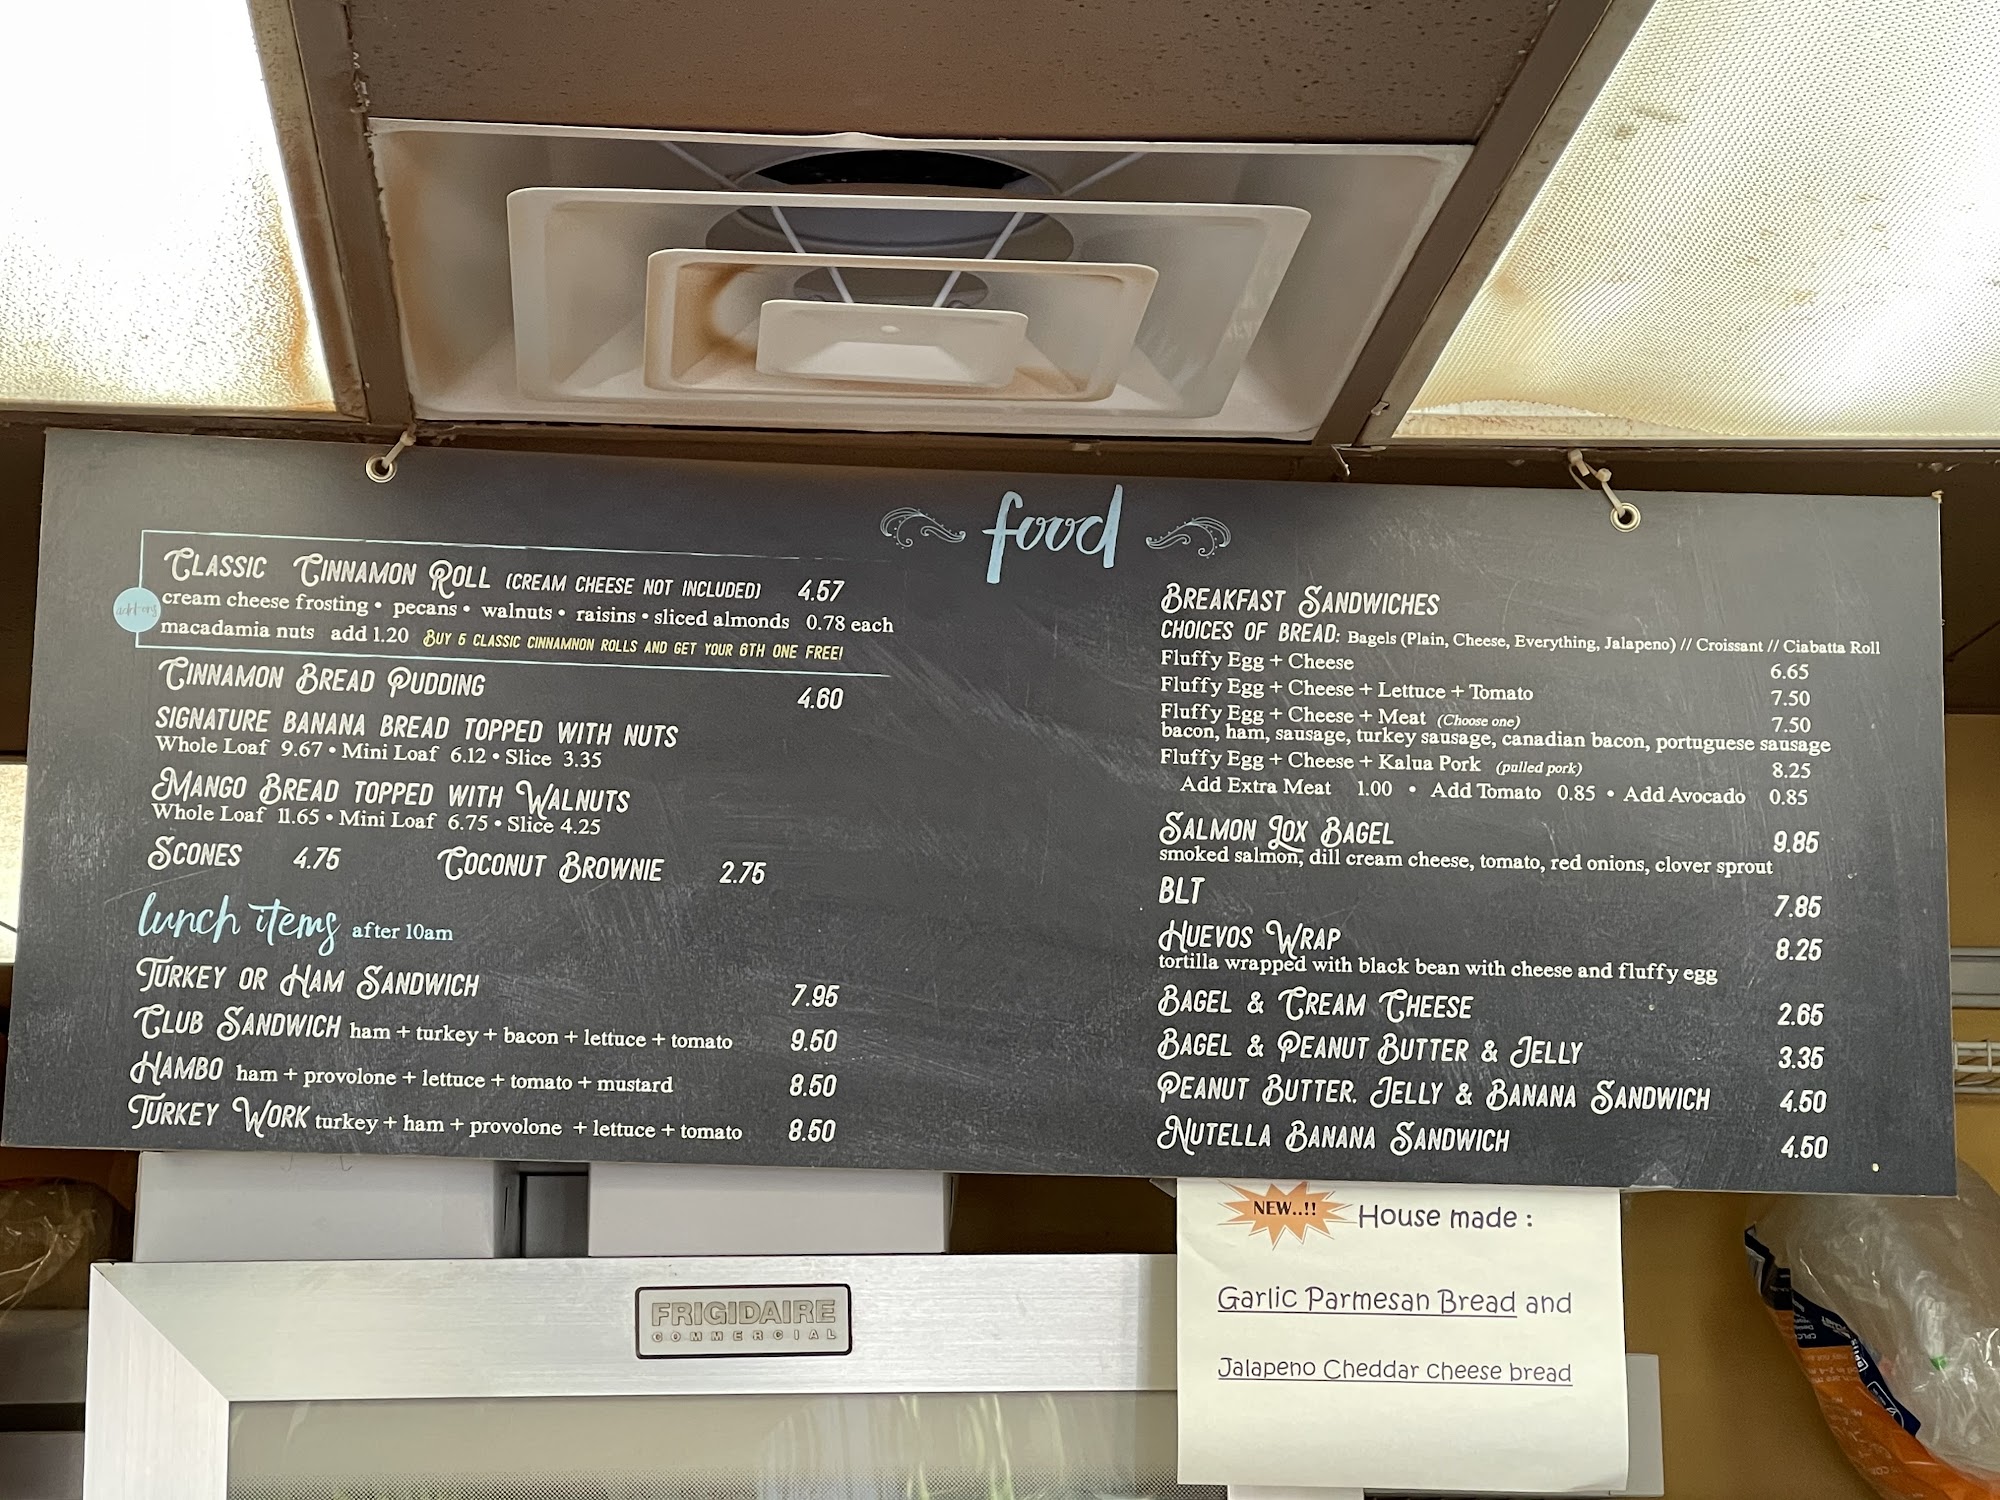 food
CLASSIC CINNAMON ROLL (CREAM CHEESE NOT INCLUDED) 4.57
add-ons
cream cheese frosting • pecans • walnuts • raisins • sliced almonds 0.78 each
macadamia nuts add 1.20 BUY 5 CLASSIC CINNAMNON ROLLS AND GET YOUR 6TH ONE FREE!
CINNAMON BREAD PUDDING 4.60
SIGNATURE BANANA BREAD TOPPED WITH NUTS
Whole Loaf 9.67 • Mini Loaf 6.12 • Slice 3.35
MANGO BREAD TOPPED WITH WALNUTS
Whole Loaf 11.65 • Mini Loaf 6.75 • Slice 4.25
SCONES 4.75 COCONUT BROWNIE 2.75
lunch items after 10am
TURKEY OR HAM SANDWICH 7.95
CLUB SANDWICH ham + turkey + bacon + lettuce + tomato 9.50
HAMBO ham + provolone + lettuce + tomato + mustard 8.50
TURKEY WORK turkey + ham + provolone + lettuce + tomato 8.50
BREAKFAST SANDWICHES
CHOICES OF BREAD: Bagels (Plain, Cheese, Everything, Jalapeno) // Croissant // Ciabatta Roll
Fluffy Egg + Cheese 6.65
Fluffy Egg + Cheese + Lettuce + Tomato 7.50
Fluffy Egg + Cheese + Meat (Choose one) 7.50
bacon, ham, sausage, turkey sausage, canadian bacon, portuguese sausage
Fluffy Egg + Cheese + Kalua Pork (pulled pork) 8.25
Add Extra Meat 1.00 • Add Tomato 0.85 • Add Avocado 0.85
SALMON LOX BAGEL 9.85
smoked salmon, dill cream cheese, tomato, red onions, clover sprout
BLT 7.85
HUEVOS WRAP 8.25
tortilla wrapped with black bean with cheese and fluffy egg
BAGEL & CREAM CHEESE 2.65
BAGEL & PEANUT BUTTER & JELLY 3.35
PEANUT BUTTER, JELLY & BANANA SANDWICH 4.50
NUTELLA BANANA SANDWICH 4.50
NEW..!! House made :
Garlic Parmesan Bread and
Jalapeno Cheddar cheese bread
FRIGIDAIRE
COMMERCIAL